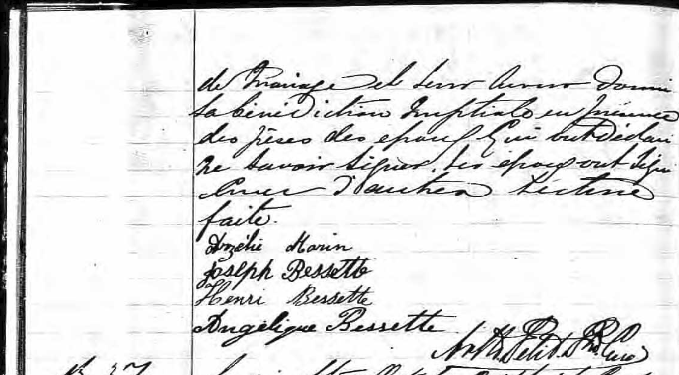 de mariage et leur avons donné
la bénédiction nuptiale en présence
des pères des epoux qui ont déclaré
ne savoir signer. Les époux ont signé
avec d'autres lecture
faite.
Amélie Morin
Joseph Bessette
Henri Bessette
Angélique Bessette
Petit Ptre Curé